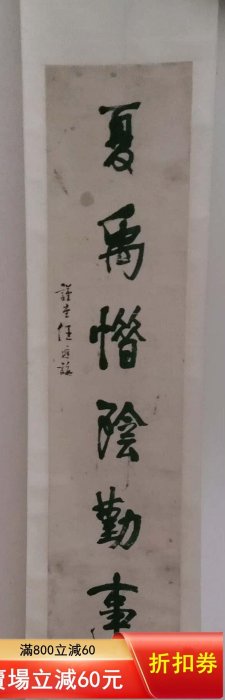 夏禹惜陰勤事
滿800立減60
賣場立減60元
折扣券